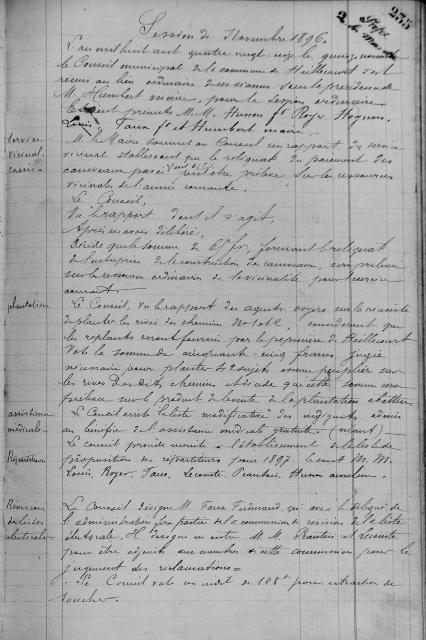 235
Session de Novembre 1896.
L'an mil huit cent quatre vingt seize le quinze novembre
le Conseil municipal de la commune de Heillecourt s'est
réuni au lieu ordinaire de ses séances sous la présidence de
M. Humbert maire, pour la session ordinaire
Etaient présents M.M. Husson f. Royer
Louis, Faux f. et Humbert maire.
Service
vicinal
M. le Maire soumet au Conseil un rapport du service
vicinal établissant que le reliquat du paiement des
caniveaux pavés peut être prélevé sur les ressources
vicinales de l'année courante.
Le Conseil,
Vu le rapport dont il s'agit,
Après en avoir délibéré,
Décide que la somme de formant le reliquat
de l'entreprise de la construction des caniveaux, sera prélevée
sur les ressources ordinaires de la vicinalité pour l'exercice
courant.
plantations
Le Conseil, Vu le rapport des agents voyers sur la nécessité
de planter les rives des chemins No 1 et 2, considérant que
les replants seront fournis par la pépinière de Heillecourt
Vote la somme de cinquante cinq francs jugée
nécessaire pour planter 42 sujets essence peuplier sur
les rives desdits chemins et décide que cette somme sera
prélevée sur le produit de la vente de la plantation abattue
assistance
médicale
Le Conseil arrête la liste modificative des indigents admis
au bénéfice de l'assistance médicale gratuite (néant)
Répartiteurs
Le conseil procède ensuite à l'établissement de la liste de
proposition des répartiteurs pour 1897 ce sont M.M.
Louis, Royer, Faux, Lecomte, Husson
Révision
de listes
électorales
Le Conseil désigne M. Faux Ferdinand, qui avec le délégué de
l'administration fera partie de la commission de révision de la liste
électorale. Il désigne en outre M.M. et Lecomte
pour être adjoints aux membres de cette commission pour le
jugement des réclamations =
Le Conseil vote un crédit de 108 f pour extraction de
souches.